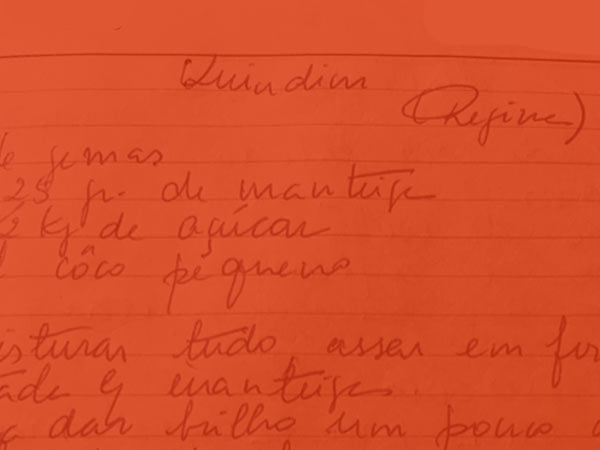 Quindim
(Regina)
de gemas
25 gr. de manteiga
2 kg de açúcar
côco pequeno
isturar tudo assar em for
tada c/ manteiga.
dar brilho um pouco